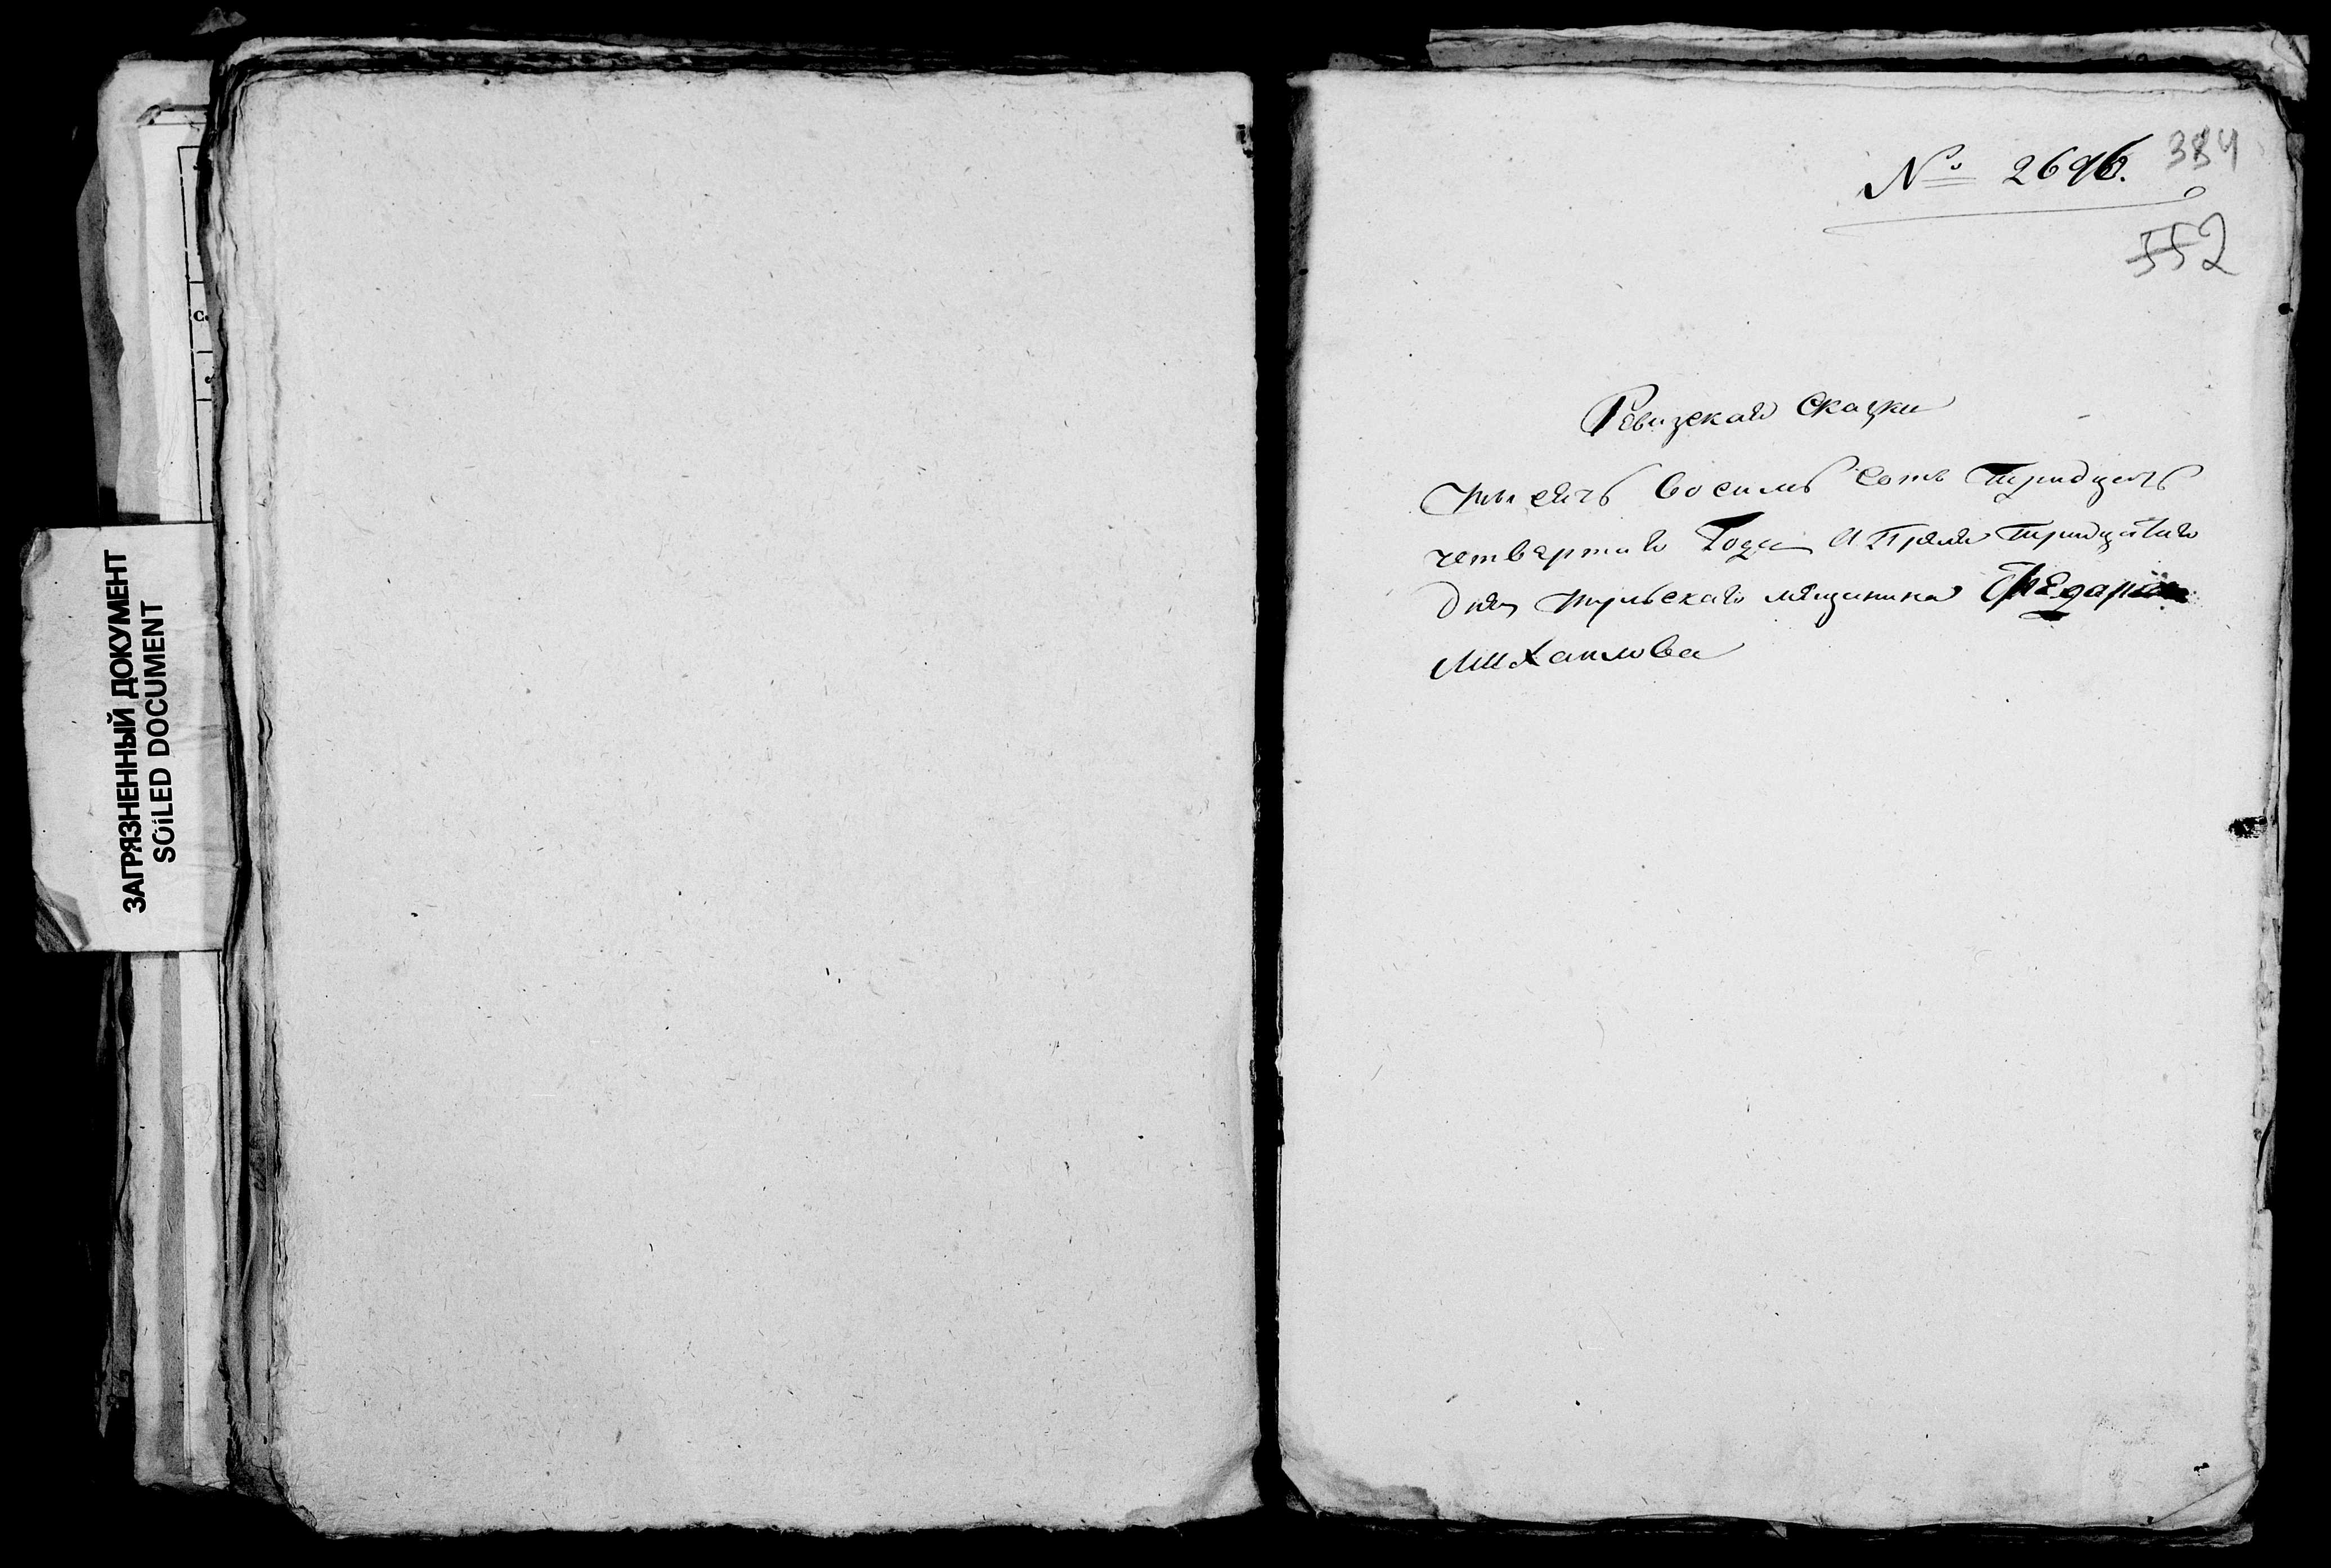 ЗАГРЯЗНЕННЫЙ ДОКУМЕНТ
SOILED DOCUMENT
№ 2696.
384
552
Ревизская Скаски
тысячь Восимь сотъ Тридцать
четвертаго Года Апреля Тридцатаго
дня тульскаго мещинина
Михаилова